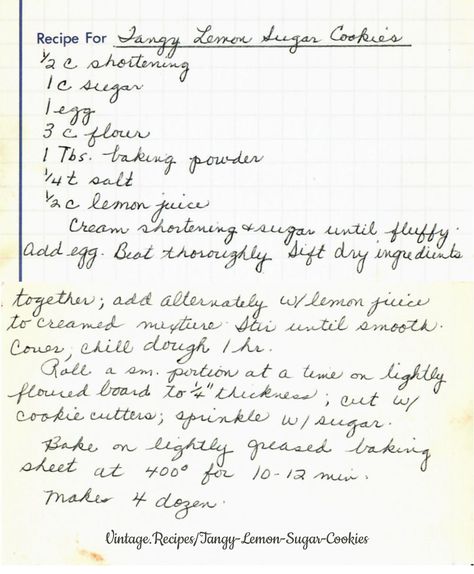 Recipe For Tangy Lemon Sugar Cookies
1/2 c shortening
1 c sugar
1 egg
3 c flour
1 Tbs. baking powder
1/4 t salt
1/2 c lemon juice
Cream shortening & sugar until fluffy.
Add egg. Beat thoroughly Sift dry ingredients
together; add alternately w/ lemon juice
to creamed mixture. Stir until smooth.
Cover, chill dough 1 hr.
Roll a sm. portion at a time on lightly
floured board to 1/4" thickness; cut w/
cookie cutters; sprinkle w/ sugar.
Bake on lightly greased baking
sheet at 400° for 10-12 min.
Makes 4 dozen.
Vintage.Recipes/Tangy-Lemon-Sugar-Cookies